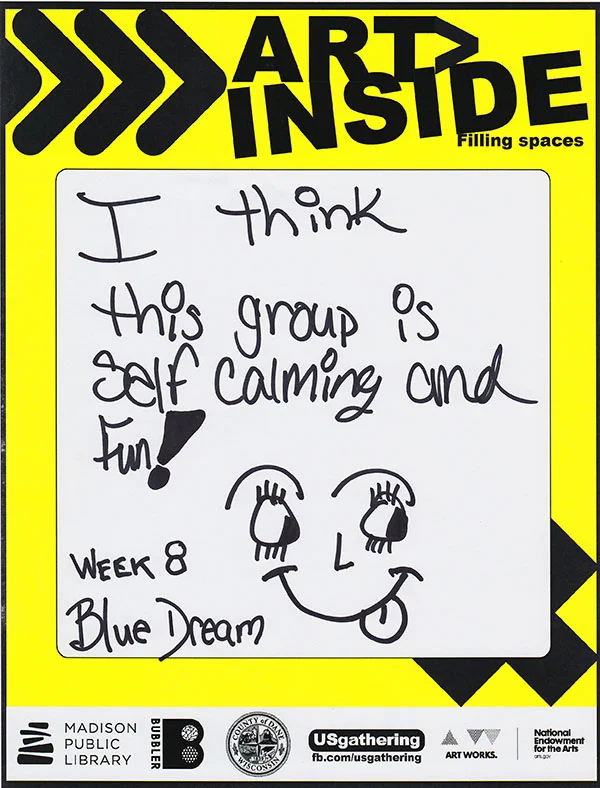 ART>
INSIDE
Filling spaces
I think
this group is
Self Calming and
Fun!
WEEK 8
Blue Dream
MADISON
PUBLIC
LIBRARY
BUBBLER
COUNTY of DANE
WISCONSIN
USgathering
fb.com/usgathering
ART WORKS.
National
Endowment
for the Arts
arts.gov